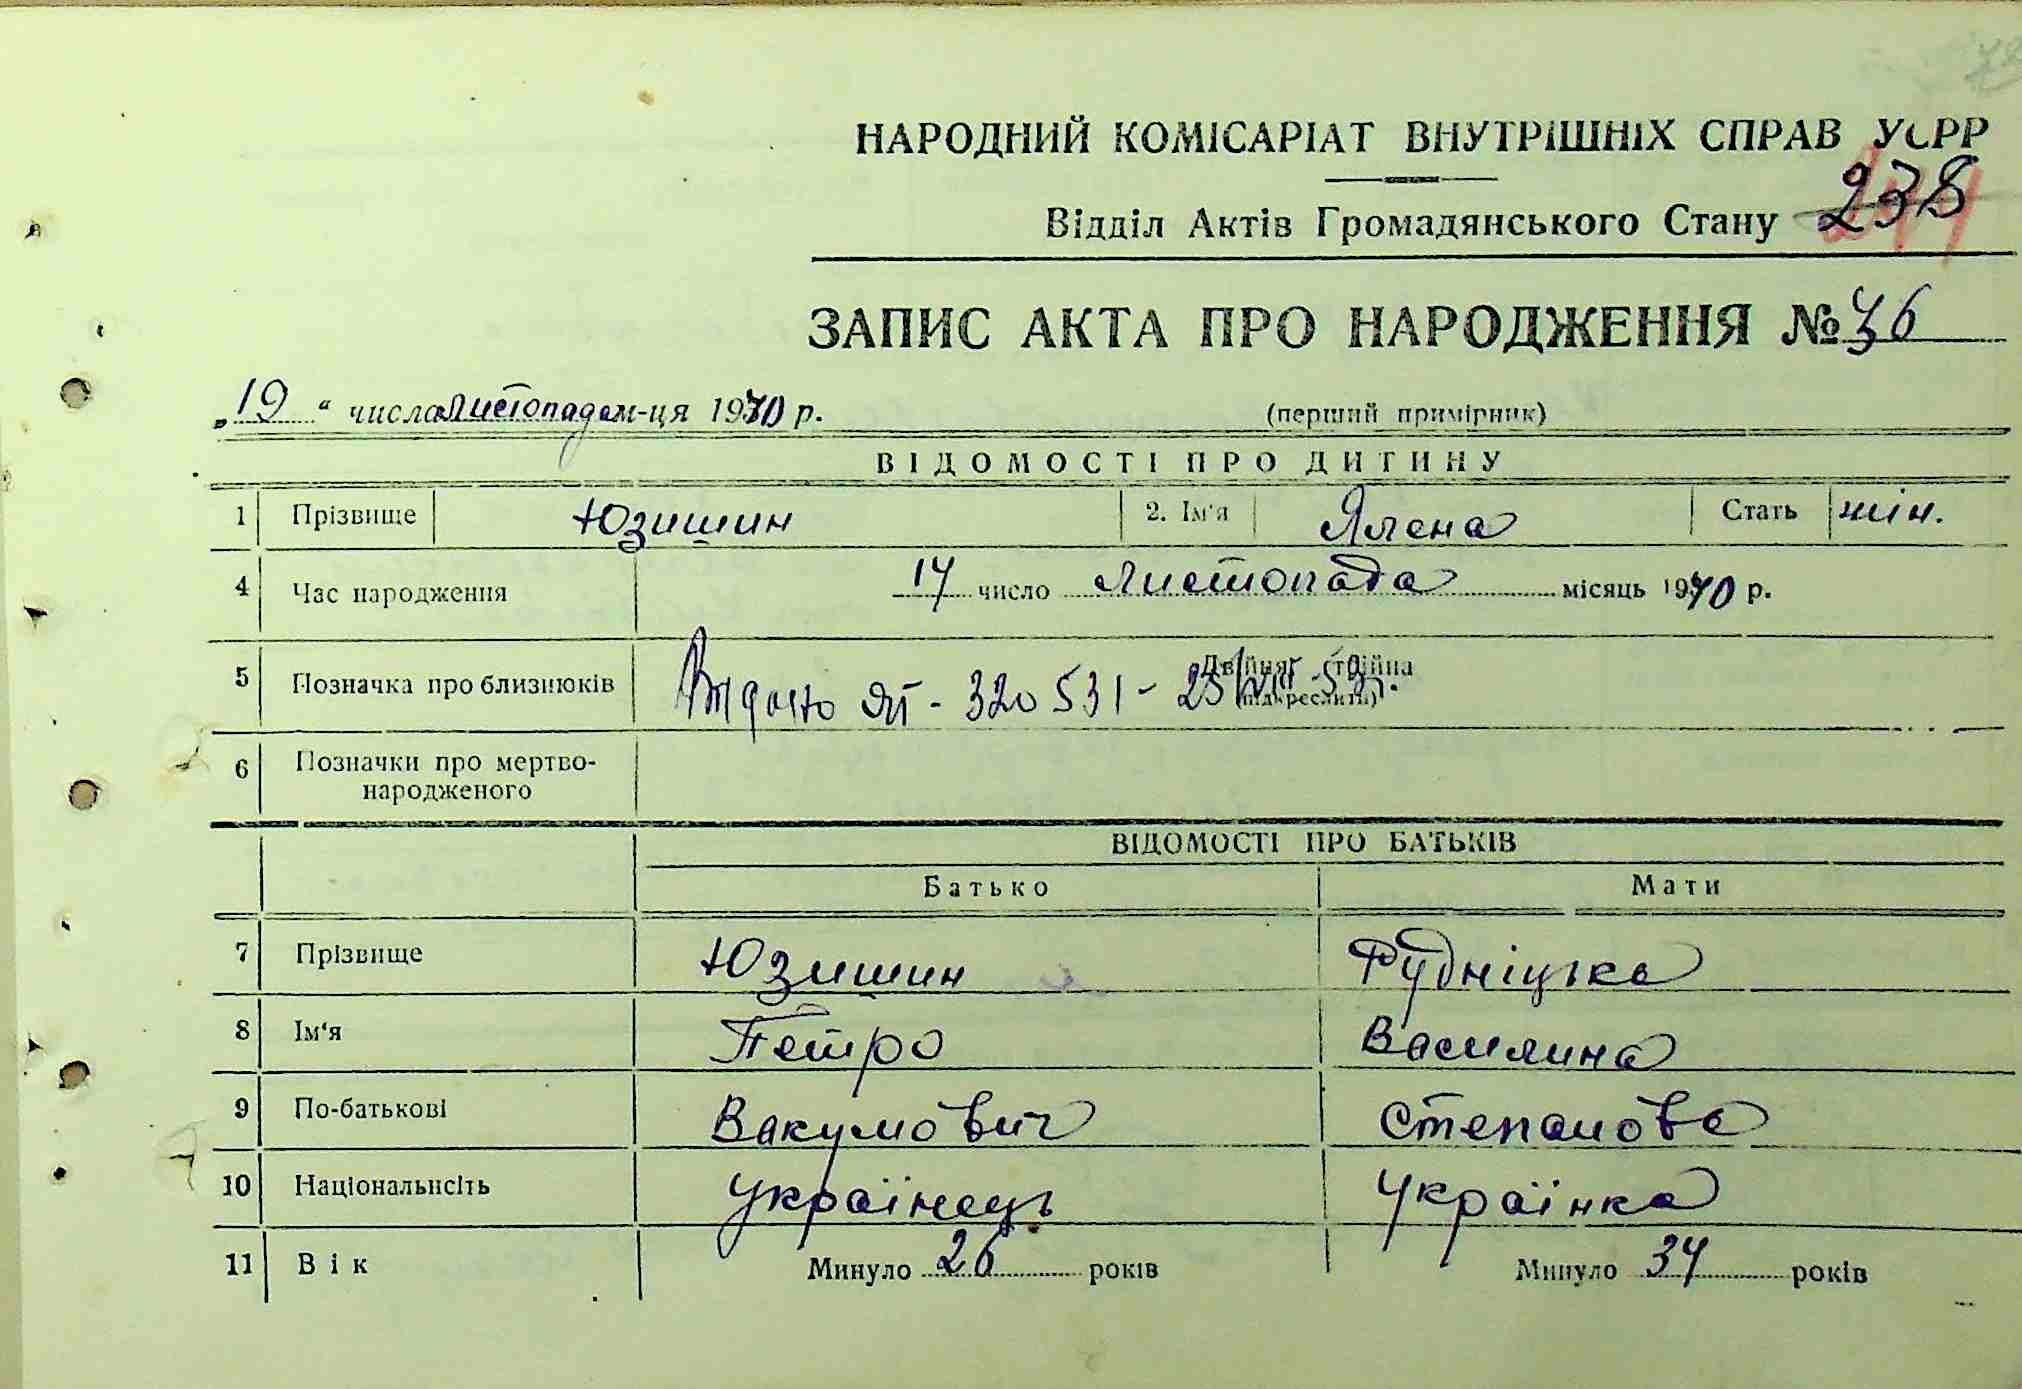 НАРОДНИЙ КОМІСАРІАТ ВНУТРІШНІХ СПРАВ УСРР
Відділ Актів Громадянського Стану 238
ЗАПИС АКТА ПРО НАРОДЖЕННЯ № 36
„19“ числа листопада м-ця 1940 р. (перший примірник)
ВІДОМОСТІ ПРО ДИТИНУ
1 Прізвище Юзишин 2. Ім'я Ялена Стать жін.
4 Час народження 14 число листопада місяць 1940 р.
5 Позначка про близнюків Двійня, трійна
(підкреслити)
Видано ЯТ - 320531 - 25/VIII-53.
6 Позначки про мертво-
народженого
ВІДОМОСТІ ПРО БАТЬКІВ
Батько Мати
7 Прізвище Юзишин Рудніцька
8 Ім'я Петро Василина
9 По-батькові Вакумович Степанова
10 Національність Українець Українка
11 Вік Минуло 26 років Минуло 34 років